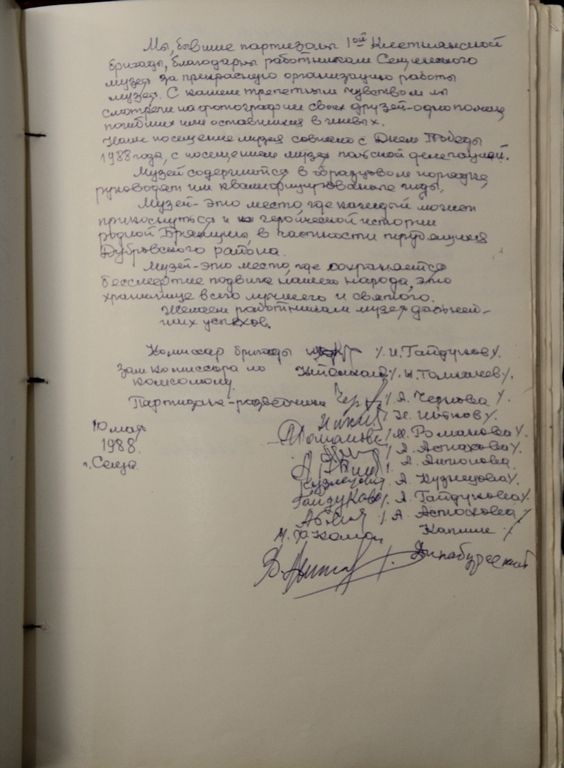 Мы, бывшие партизаны 1ой Клетнянской
бригады, благодарны работникам Сещенского
музея за прекрасную организацию работы
музея. С каким трепетным чувством мы
смотрели на фотографии своих друзей-однополчан,
погибших или оставшихся в живых.
Наше посещение музея совпало с Днем Победы
1988 года, с посещением музея польской делегацией.
Музей содержится в образцовом порядке,
руководят им квалифицированные гиды.
Музей - это место где каждый может
прикоснуться к героической истории
родной Брянщины, в частности трудящихся
Дубровского района.
Музей - это место, где сохраняется
бессмертие подвига нашего народа, это
хранилище всего лучшего и святого.
Желаем работникам музея дальней-
ших успехов.
Комиссар бригады /И. Гайдуков/
Зам. комиссара по /И. Толкачев/.
комсомолу
Партизаны-разведчики /А. Чернова/
10 мая
1988.
г. Сеща
/М. Романова/
/А. Астахова/
/А. Антонова
/А. Кузнецова
/А. Гайдукова/
/А.